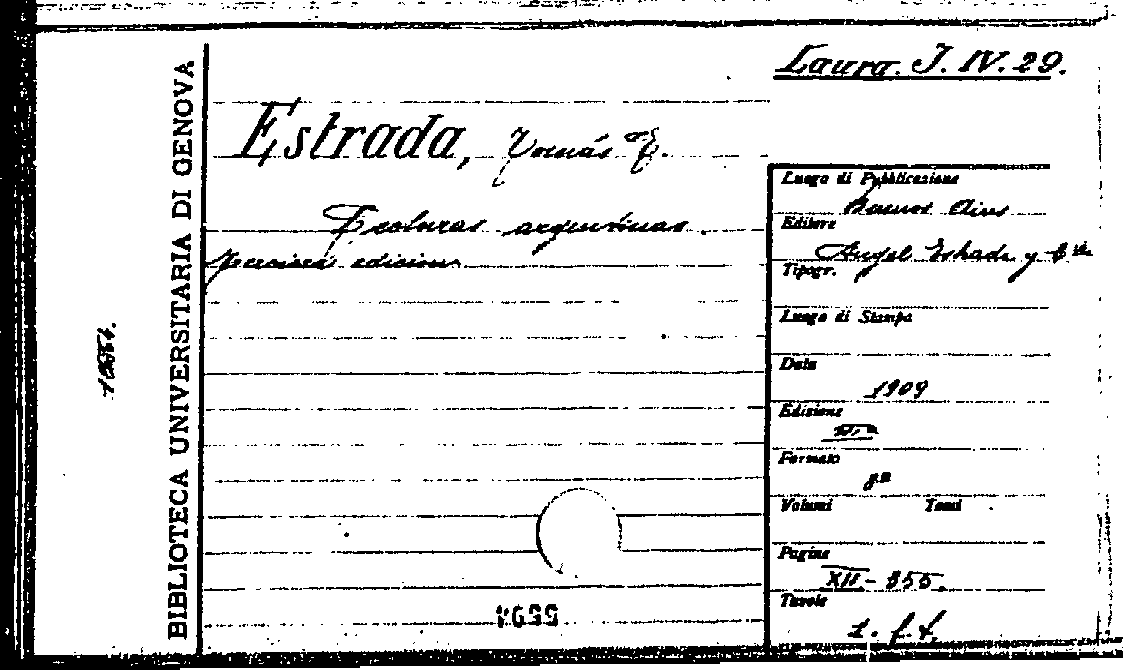 Laura. J. IV. 29.
Estrada, Tomás E.
Lecturas argentinas.
edicion
Luogo di Pubblicazione
Buenos Aires
Editore
Angel Estrada y Cia
Tipogr.
Luogo di Stampa
Data
1909
Edizione
Formato
8º
Volumi Tomi
Pagine
XII - 355.
Tavole
1. f. t.
BIBLIOTECA UNIVERSITARIA DI GENOVA